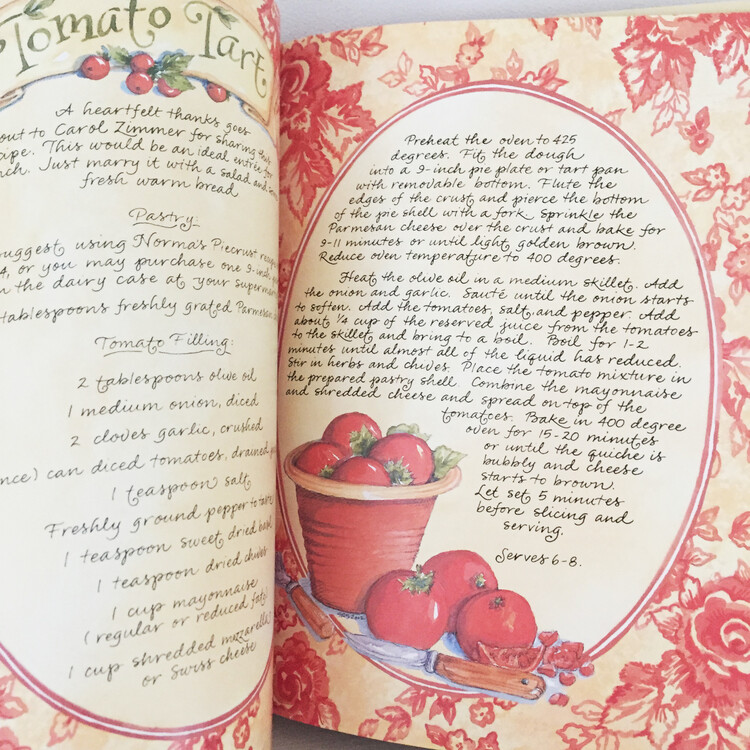 Tomato Tart
A heartfelt thanks goes
out to Carol Zimmer for sharing this
This would be an ideal entrée for
Just marry it with a salad and
fresh warm bread
Pastry:
suggest using Norma's Piecrust
4, or you may purchase one 9-inch
the dairy case at your
tablespoons freshly grated Parmesan
Tomato Filling:
2 tablespoons olive oil
1 medium onion, diced
2 cloves garlic, crushed
can diced tomatoes, drained
1 teaspoon salt
Freshly ground pepper to taste
1 teaspoon sweet dried basil
1 teaspoon dried chives
1 cup mayonnaise
(regular or reduced fat)
1 cup shredded mozzarella
or Swiss cheese
Preheat the oven to 425
degrees. Fit the dough
into a 9-inch pie plate or tart pan
with removable bottom. Flute the
edges of the crust and pierce the bottom
of the pie shell with a fork. Sprinkle the
Parmesan cheese over the crust and bake for
9-11 minutes or until light golden brown.
Reduce oven temperature to 400 degrees.
Heat the olive oil in a medium skillet. Add
the onion and garlic. Sauté until the onion starts
to soften. Add the tomatoes, salt, and pepper. Add
about ¼ cup of the reserved juice from the tomatoes
to the skillet and bring to a boil. Boil for 1-2
minutes until almost all of the liquid has reduced.
Stir in herbs and chives. Place the tomato mixture in
the prepared pastry shell. Combine the mayonnaise
and shredded cheese and spread on top of the
tomatoes. Bake in 400 degree
oven for 15-20 minutes
or until the quiche is
bubbly and cheese
starts to brown.
Let set 5 minutes
before slicing and
serving.
Serves 6-8.